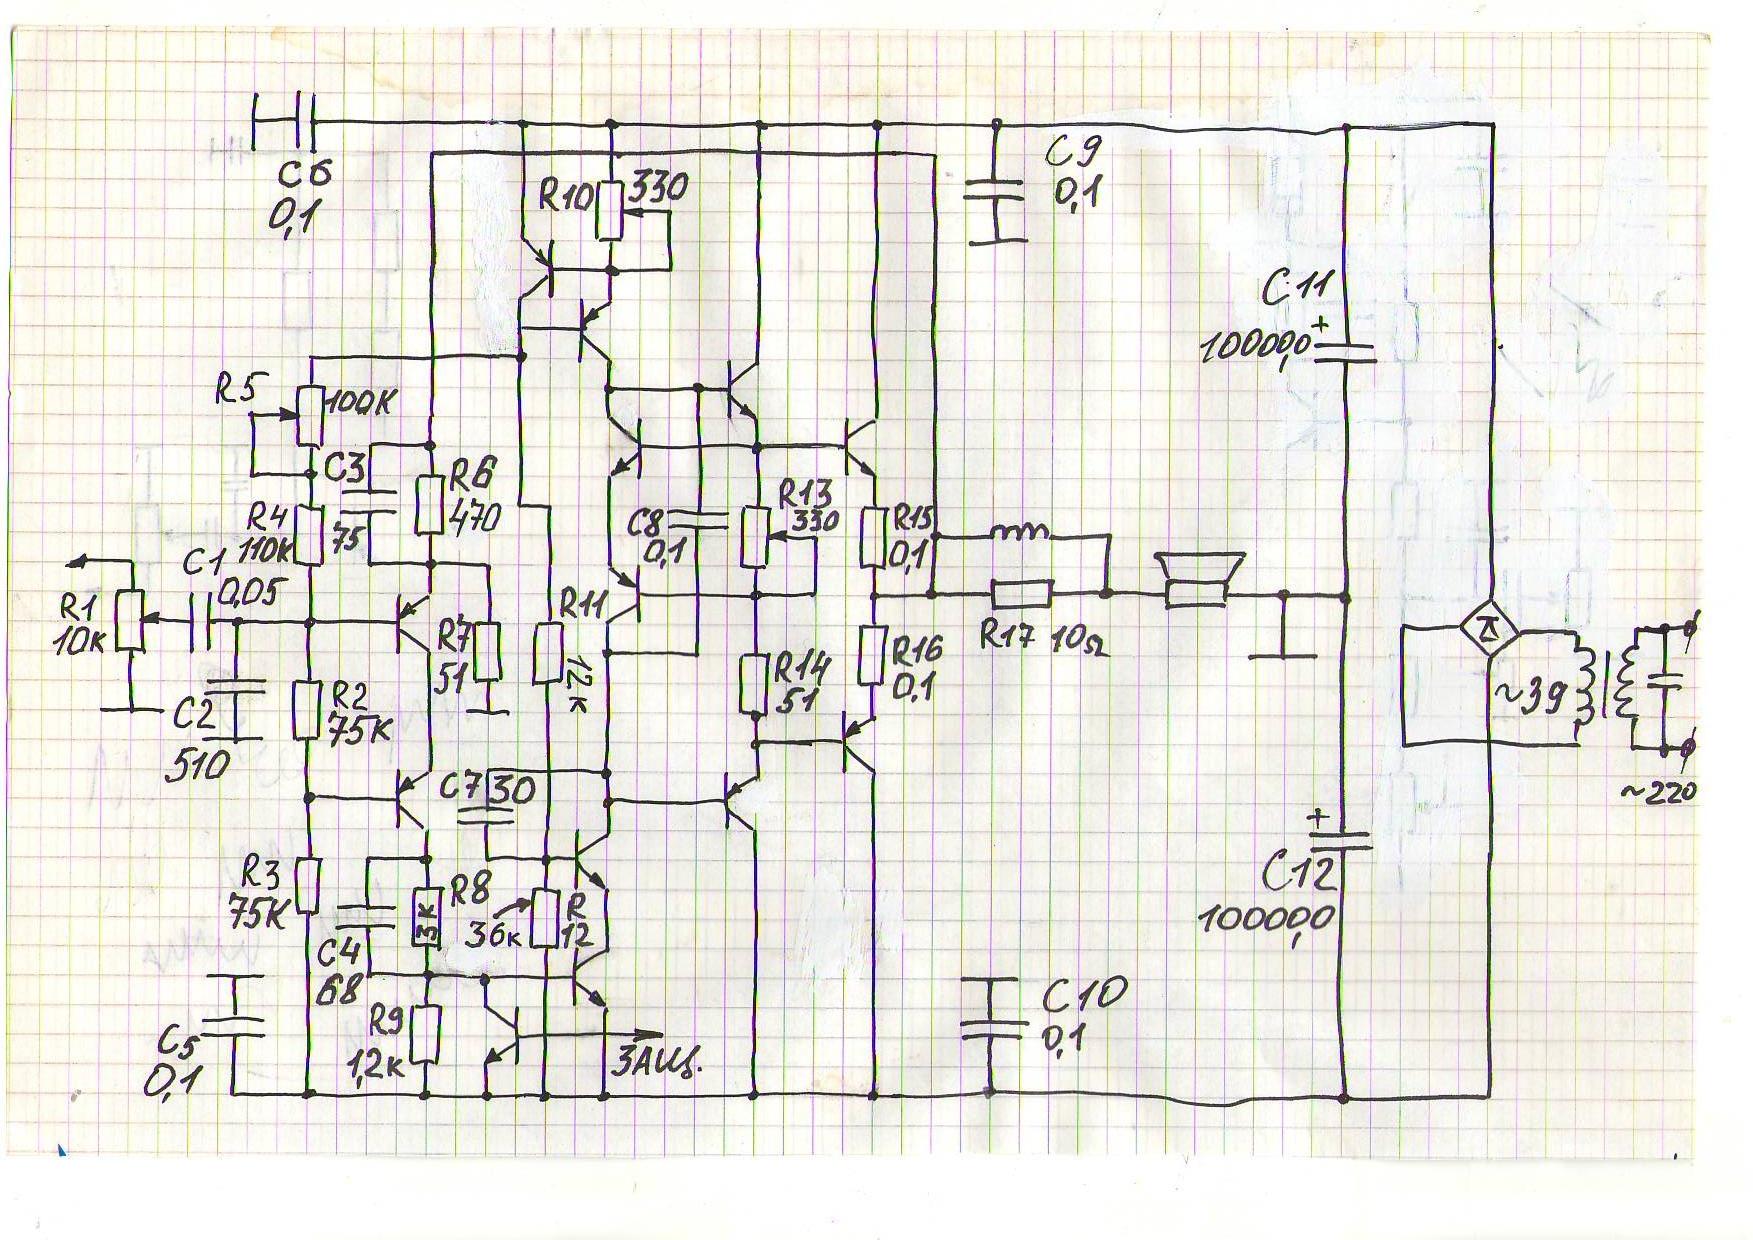 C6
0,1
R10
330
C9
0,1
C11
+
10000,0
R5
100К
C3
75
R6
470
R4
110К
C8
0,1
R13
330
R15
0,1
C1
0,05
R1
10К
R11
12К
R7
51
R17 10Ω
R16
0,1
R14
51
C2
510
R2
75К
~39
~220
C7
30
+
C12
10000,0
R3
75К
R8
3К
36К
R
12
C4
68
C5
0,1
R9
1,2К
ЗАЩ.
C10
0,1